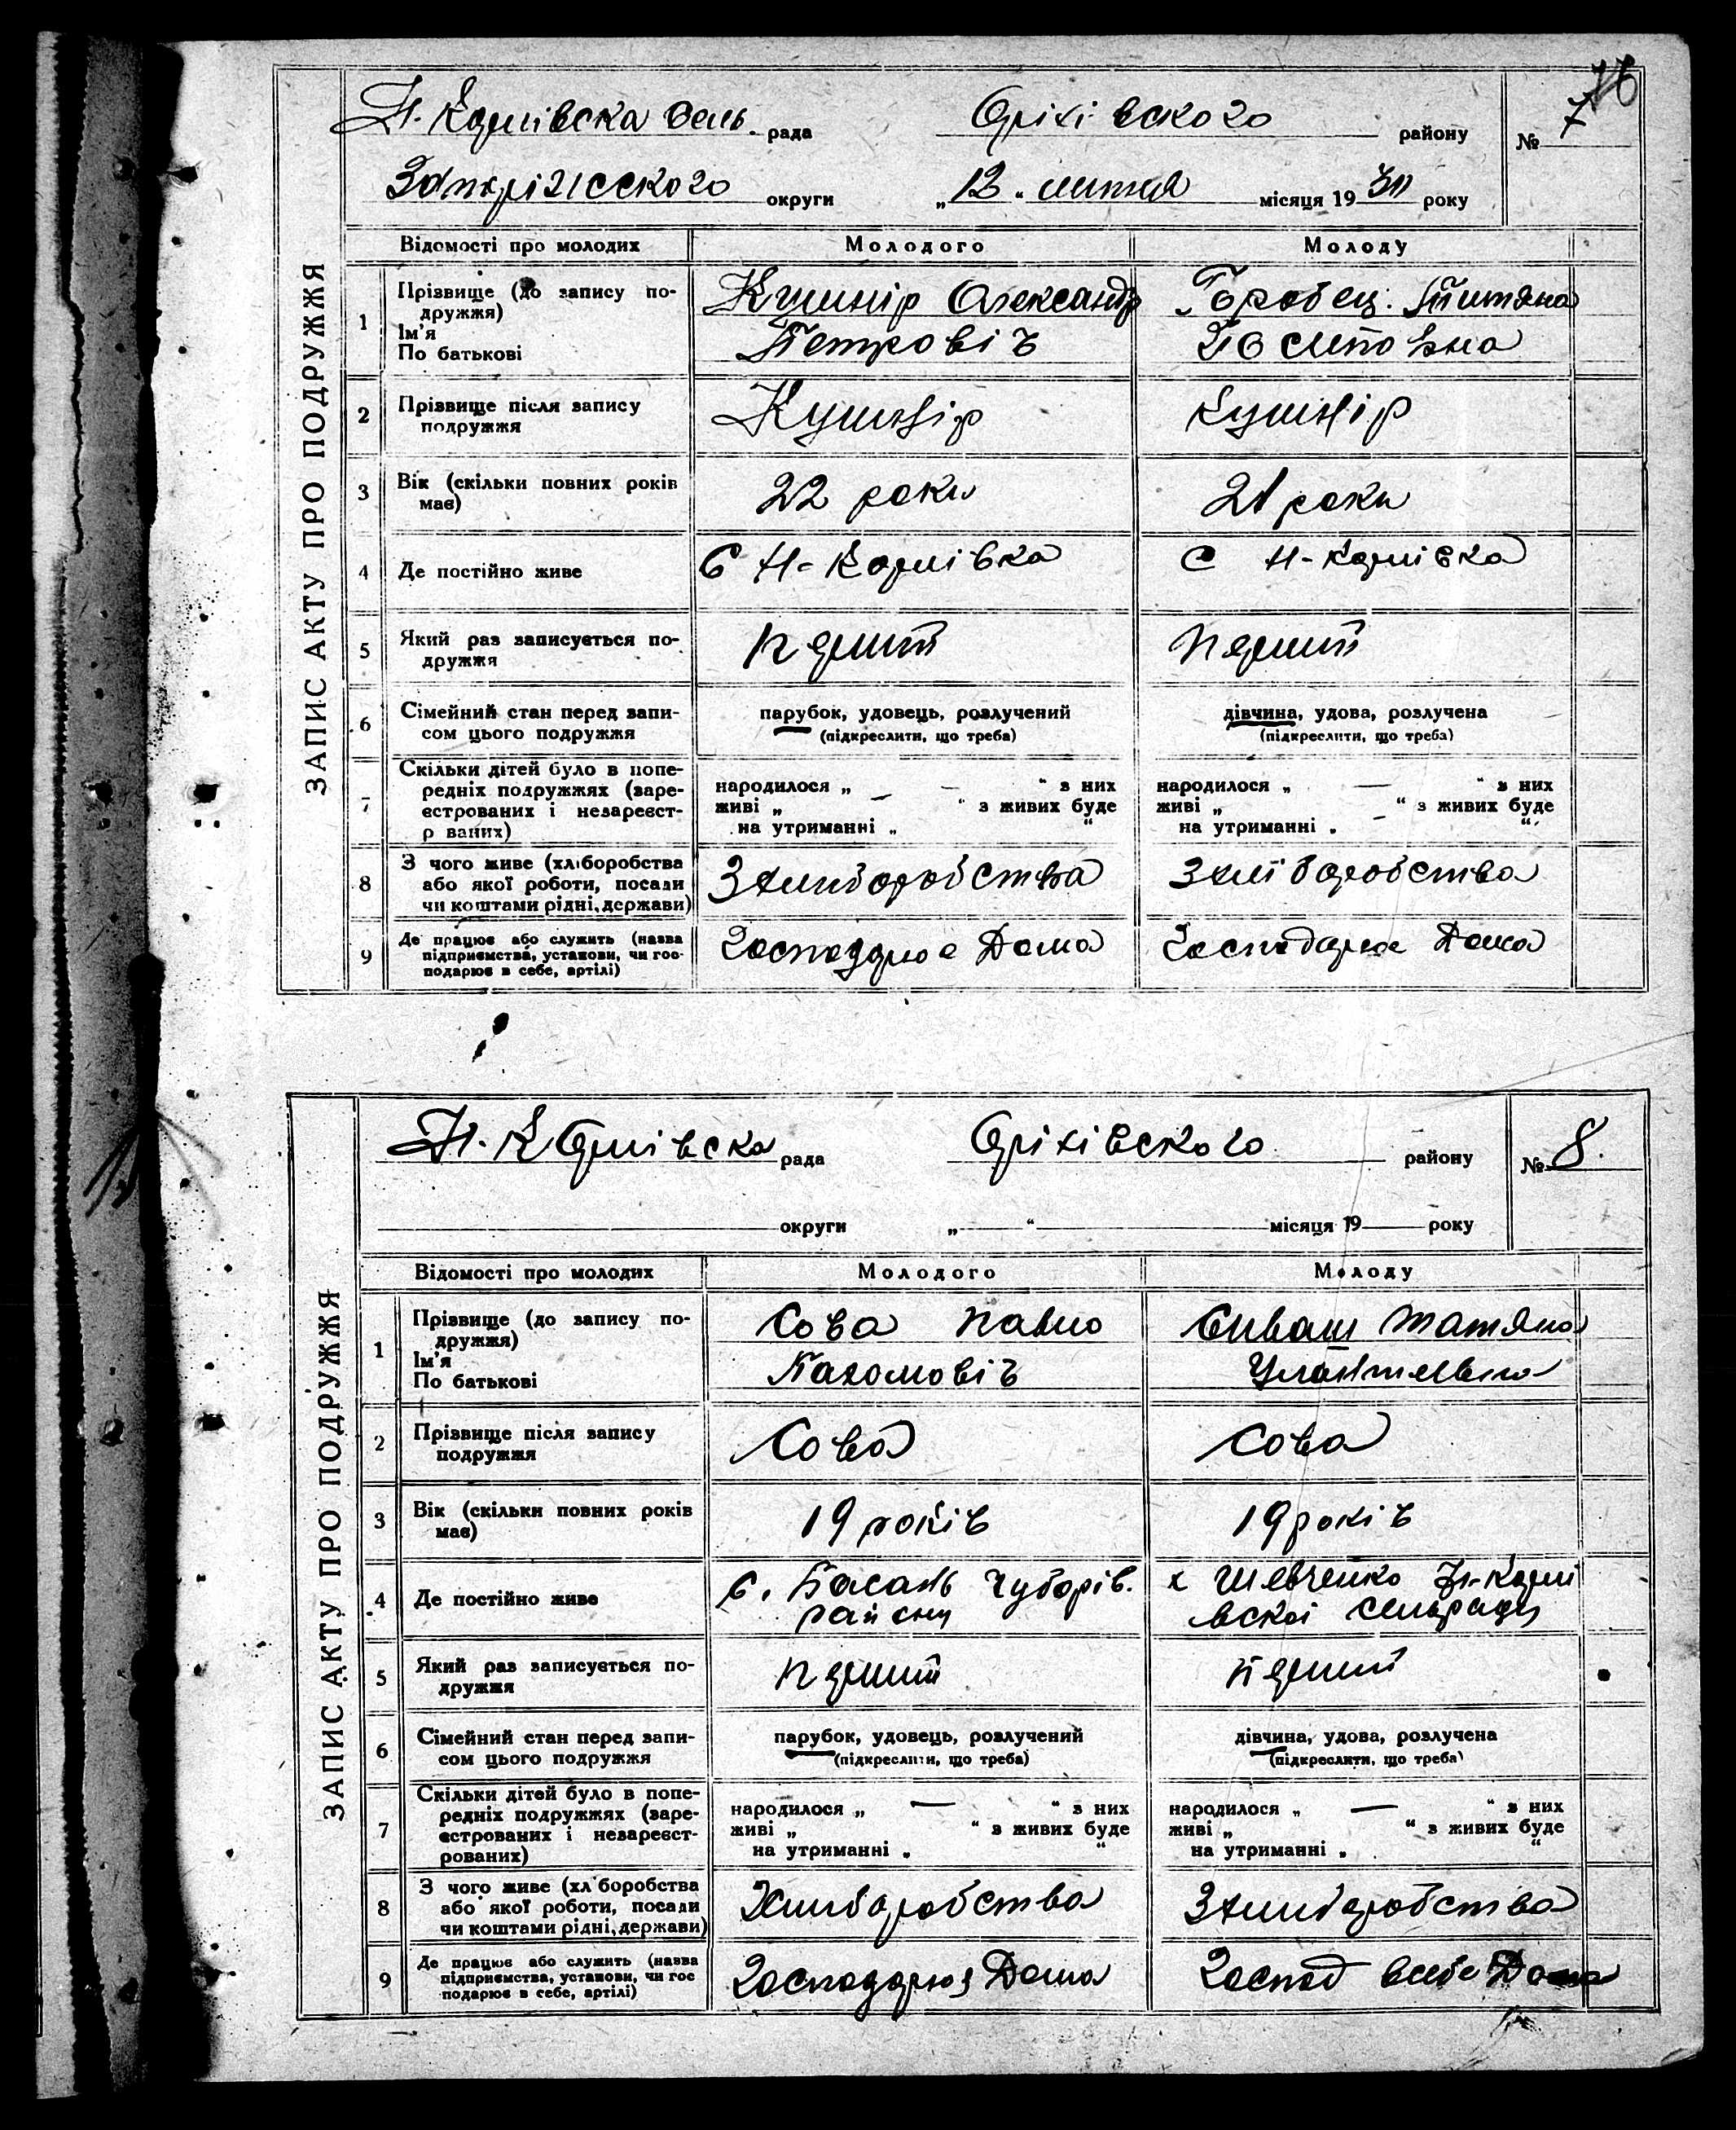 76
Н. Карлівска сель. рада Оріхівского району № 7
Запорізского округи „12“ лютня місяця 1930 року
ЗАПИС АКТУ ПРО ПОДРУЖЖЯ
Відомості про молодих Молодого Молоду
1 Прізвище (до запису подружжя) Кушнір Олександр Горобец
Ім’я
По батькові Петровіч
2 Прізвище після запису Кушнір Кушнір
подружжя
3 Вік (скільки повних років 22 роки 21 роки
має)
4 Де постійно живе С Н-Карлівка С Н-Карлівка
5 Який раз записується по- перший перший
дружжя
6 Сімейний стан перед запи- парубок, удовець, розлучений дівчина, удова, розлучена
сом цього подружжя (підкреслити, що треба) (підкреслити, що треба)
7 Скільки дітей було в попе-
редніх подружжях (заре- народилося „ — “ з них народилося „ — “ з них
єстрованих і незареєст- живі „ — “ з живих буде живі „ — “ з живих буде
р ваних) на утриманні „ “ на утриманні „ “
8 З чого живе (хліборобства З хлиборобства З хліборобства
або якої роботи, посади
чи коштами рідні, держави)
9 Де працює або служить (назва Господарює Дома Господарює Дома
підприємства, установи, чи гос-
подарює в себе, артілі)
Н. Карлівска рада Оріхівского району № 8.
округи „ “ місяця 19 року
ЗАПИС АКТУ ПРО ПОДРУЖЖЯ
Відомості про молодих Молодого Молоду
1 Прізвище (до запису по- Сова Павло Сиваш Татяна
дружжя)
Ім’я
По батькові Пахомовіч
2 Прізвище після запису Сова Сова
подружжя
3 Вік (скільки повних років 19 років 19 років
має)
4 Де постійно живе с. Басань Чубарів. х Шевченко Н-Карлі
району вскої сельради
5 Який раз записується по- перший перший
дружжя
6 Сімейний стан перед запи- парубок, удовець, розлучений дівчина, удова, розлучена
сом цього подружжя (підкреслити, що треба) (підкреслити, що треба)
7 Скільки дітей було в попе-
редніх подружжях (заре- народилося „ — “ з них народилося „ — “ з них
єстрованих і незареєст- живі „ “ з живих буде живі „ “ з живих буде
рованих) на утриманні „ “ на утриманні „ “
8 З чого живе (хл боробства Хлиборобства З хлиборобства
або якої роботи, посади
чи коштами рідні, держави)
9 Де працює або служить (назва Господарює Дома Господ всебе Дома
підприємства, установи, чи гос
подарює в себе, артілі)